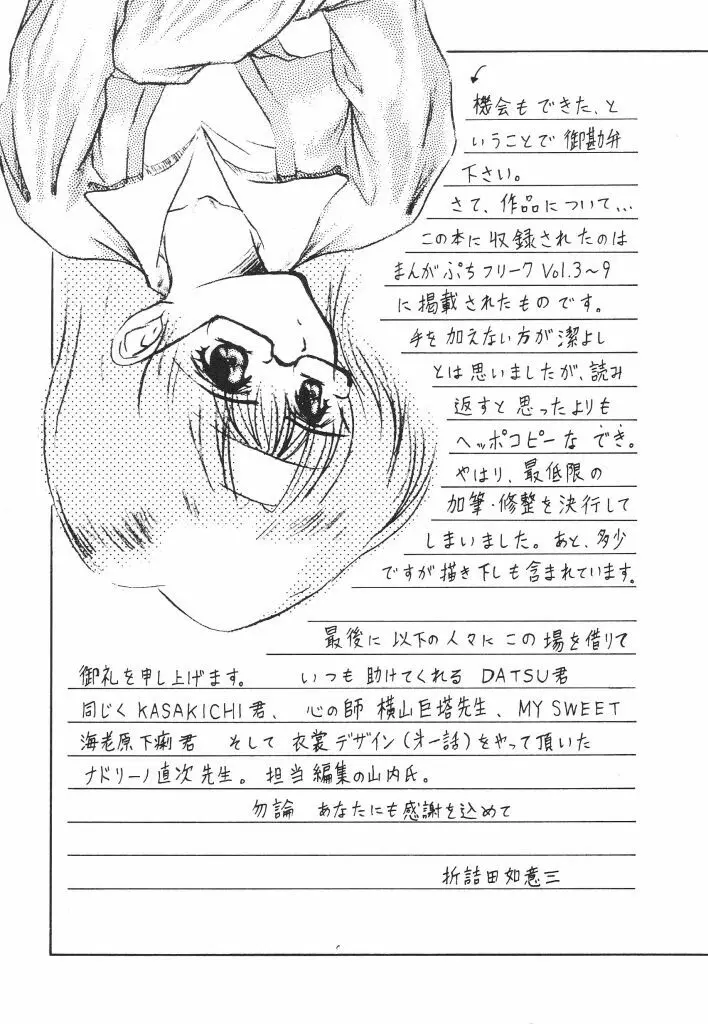 機会もできた、と
いうことで御勘弁
下さい。
さて、作品について...
この本に収録されたのは
まんがぷちフリークVol.3〜9
に掲載されたものです。
手を加えない方が潔よし
とは思いましたが、読み
返すと思ったよりも
ヘッポコピーなでき。
やはり、最低限の
加筆・修整を決行して
しまいました。あと、多少
ですが描き下しも含まれています。
最後に以下の人々にこの場を借りて
御礼を申し上げます。 いつも助けてくれるDATSU君
同じくKASAKICHI君、心の師 横山巨塔先生、MY SWEET
海老原下痢君 そして衣裳デザイン(オ一話)をやって頂いた
ナドリーノ直次先生。担当編集の山内氏。
勿論 あなたにも感謝を込めて
折詰田如意三